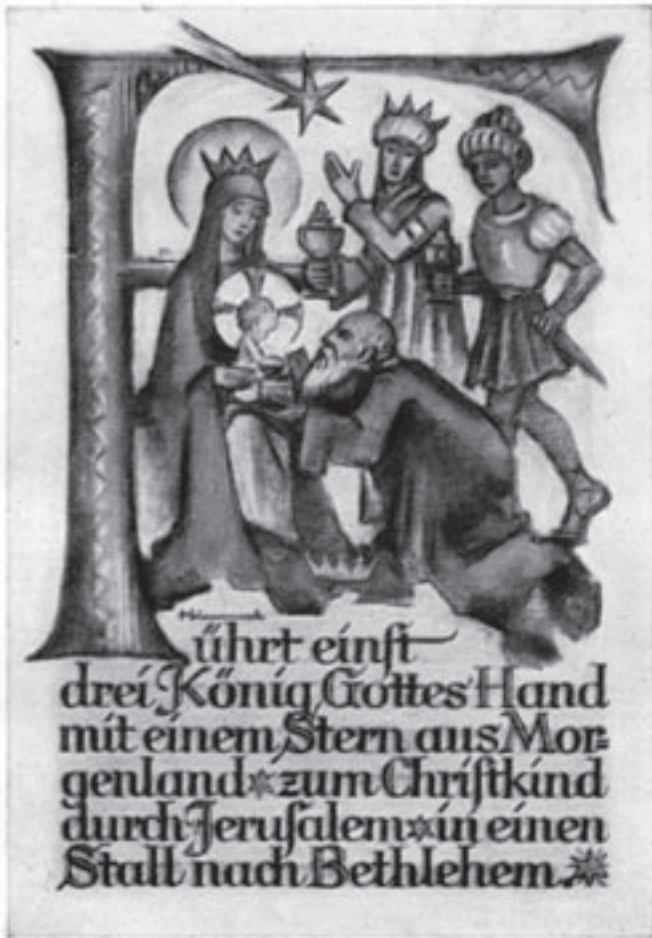 Führt einst
drei König Gottes Hand
mit einem Stern aus Mor=
genland * zum Christkind
durch Jerusalem * in einen
Stall nach Bethlehem. *